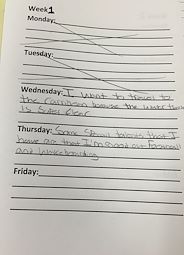 Week 1
Monday:
Tuesday:
Wednesday: I want to travel to
the carribean because the water there
is super clear
Thursday: Some small talents that I
have are that I'm good at football
and wakeboarding
Friday: